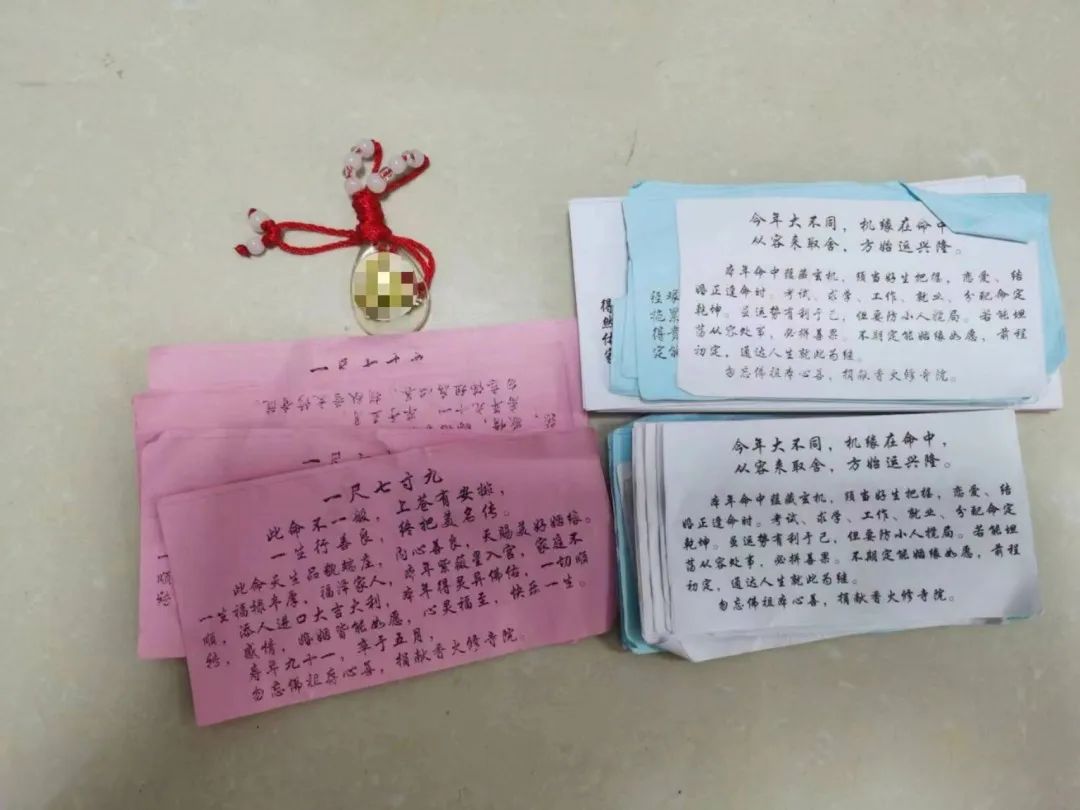 一尺七寸九
此命不一般，上苍有安排，
一生行善良，终把美名传。
此命天生品貌端庄，内心善良，天赐美好姻缘。
一生福禄丰厚，福泽家人，本年紫薇星入宫，家庭不
顺，添人进口大吉大利，本年得灵异佛佑，一切顺
转，感情，婚姻皆能如愿，心灵福至，快乐一生。
寿年九十一，卒于五月，
勿忘佛祖存心善，捐献香火修寺院。
今年大不同，机缘在命中，
从容来取舍，方始运兴隆。
本年命中蕴藏玄机，须当好生把握，恋爱、结
婚正逢命时。考试、求学、工作、就业、分配命定
乾坤。虽运势有利于己，但要防小人搅局。若能坦
荡从容处事，必择善果。不期定能姻缘如愿，前程
初定，通达人生就此为继。
勿忘佛祖本心善，捐献香火修寺院。
今年大不同，机缘在命中，
从容来取舍，方始运兴隆。
本年命中蕴藏玄机，须当好生把握，恋爱、结
婚正逢命时。考试、求学、工作、就业、分配命定
乾坤。虽运势有利于己，但要防小人搅局。若能坦
荡从容处事，必择善果。不期定能姻缘如愿，前程
初定，通达人生就此为继。
勿忘佛祖本心善，捐献香火修寺院。